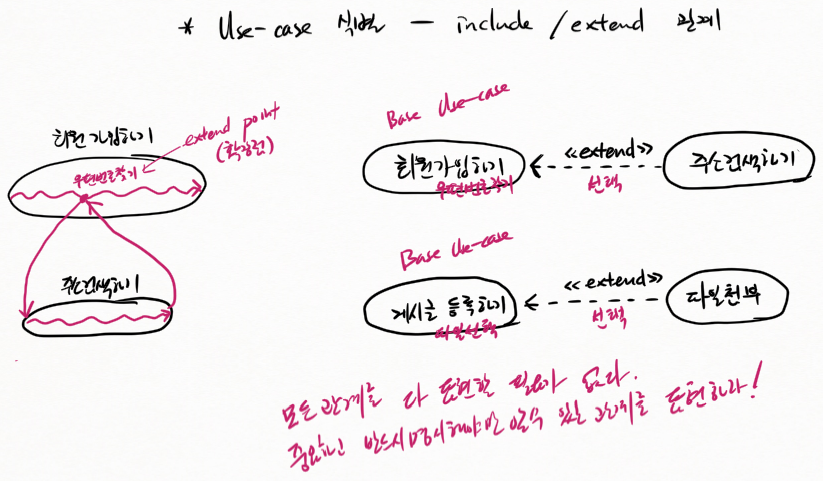 * Use-case 식별 - include / extend 관계
Base Use-case
회원가입하기
extend point
(확장점)
우편번호찾기
주소검색하기
회원가입하기
우편번호찾기
<<extend>>
선택
주소검색하기
Base Use-case
게시글 등록하기
파일선택
<<extend>>
선택
파일첨부
모든 관계를 다 표현할 필요가 없다.
중요하고 반드시 명시해야만 알 수 있는 관계를 표현하라!